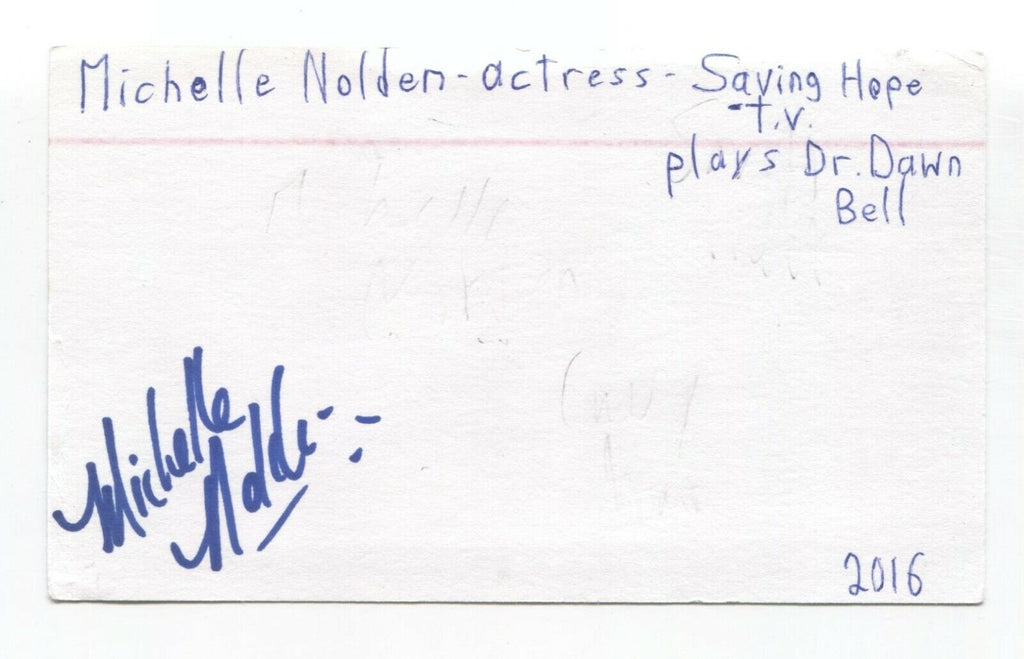 Michelle Nolden - actress - Saving Hope
- T.V.
plays Dr. Dawn
Bell
Michelle
Nolden
2016